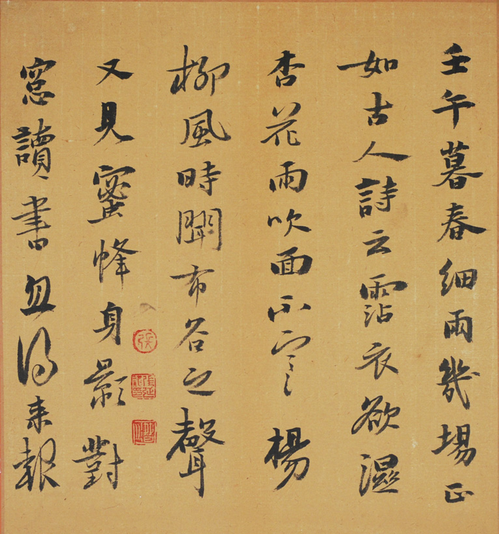 壬午暮春細雨幾場正
如古人詩云霑衣欲濕
杏花雨吹面不寒楊
柳風時聞布谷之聲
又見蜜蜂身影對
窓讀書忽得来報